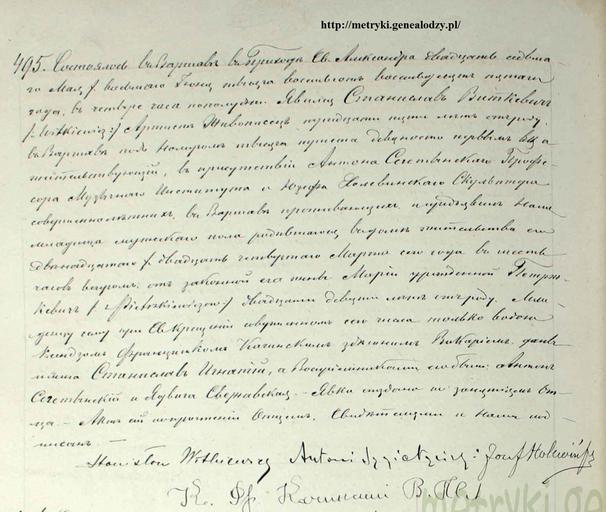 http://metryki.genealodzy.pl/
495. Состоялось въ Варшавѣ въ Приходѣ Св. Александра двадцать седьма-
го Мая / восьмого Іюня тысяча восемьсотъ восемьдесятъ пятаго
года, въ четыре часа пополудни. Явился Станиславъ Виткевичъ
/: Witkiewicz :/ Артистъ Живописецъ тридцати пяти лѣтъ отъ роду,
въ Варшавѣ подъ номеромъ тысяча шестьсотъ девяносто первымъ
жительствующій, въ присутствіи Антона Сыгетынскаго Профес-
сора Музычнаго Института и Юзефа Холевинскаго Скульптора
совершеннолѣтнихъ, въ Варшавѣ проживающихъ, и предъявилъ Намъ
младенца мужескаго пола родившагося въ домѣ жительства его
двѣнадцатаго / двадцать четвертаго Марта сего года въ шесть
часовъ вечеромъ, отъ законной его жены Маріи урожденной Петрж-
кевичъ /: Pietrzkiewiczow :/ двадцати девяти лѣтъ отъ роду. Мла-
денцу сему при Св. Крещеніи совершенномъ сего числа только водою
Ксендзомъ Францишкомъ Качинскимъ здѣшнимъ Викаріемъ, дано
имена Станиславъ Игнатій, а Воспріемниками его были: Антонъ
Сыгетынскій и Ядвига Свежавская. - Явка опоздана по занятіямъ От-
ца. - Актъ сей по прочтеніи Отцемъ, Свидѣтелями и Нами под-
писанъ. -
Stanisław Witkiewicz Antoni Sygietyński Józef Holewiński
Кс. Фр. Качинскій В.
metryki.ge